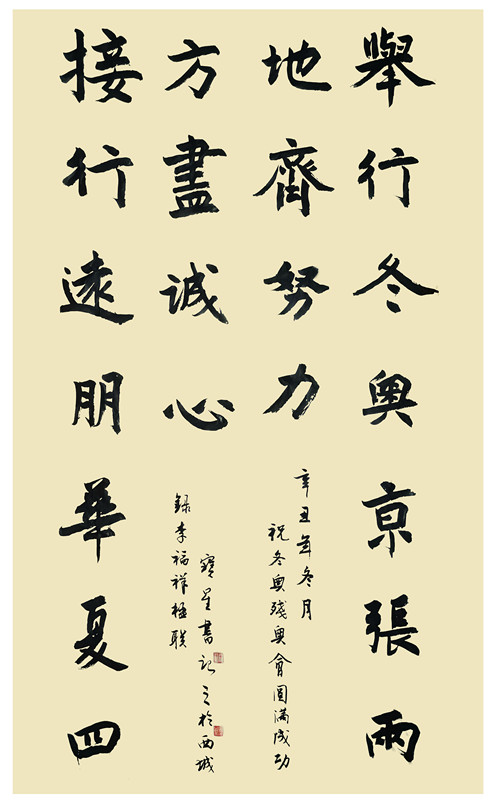 舉行冬奥亰張兩
地齊努力
接行遠朋華夏四
方盡誠心
辛丑年冬月
祝冬奥殘奥會圓滿成功
録李福祥楹联
寶星書記之於西城